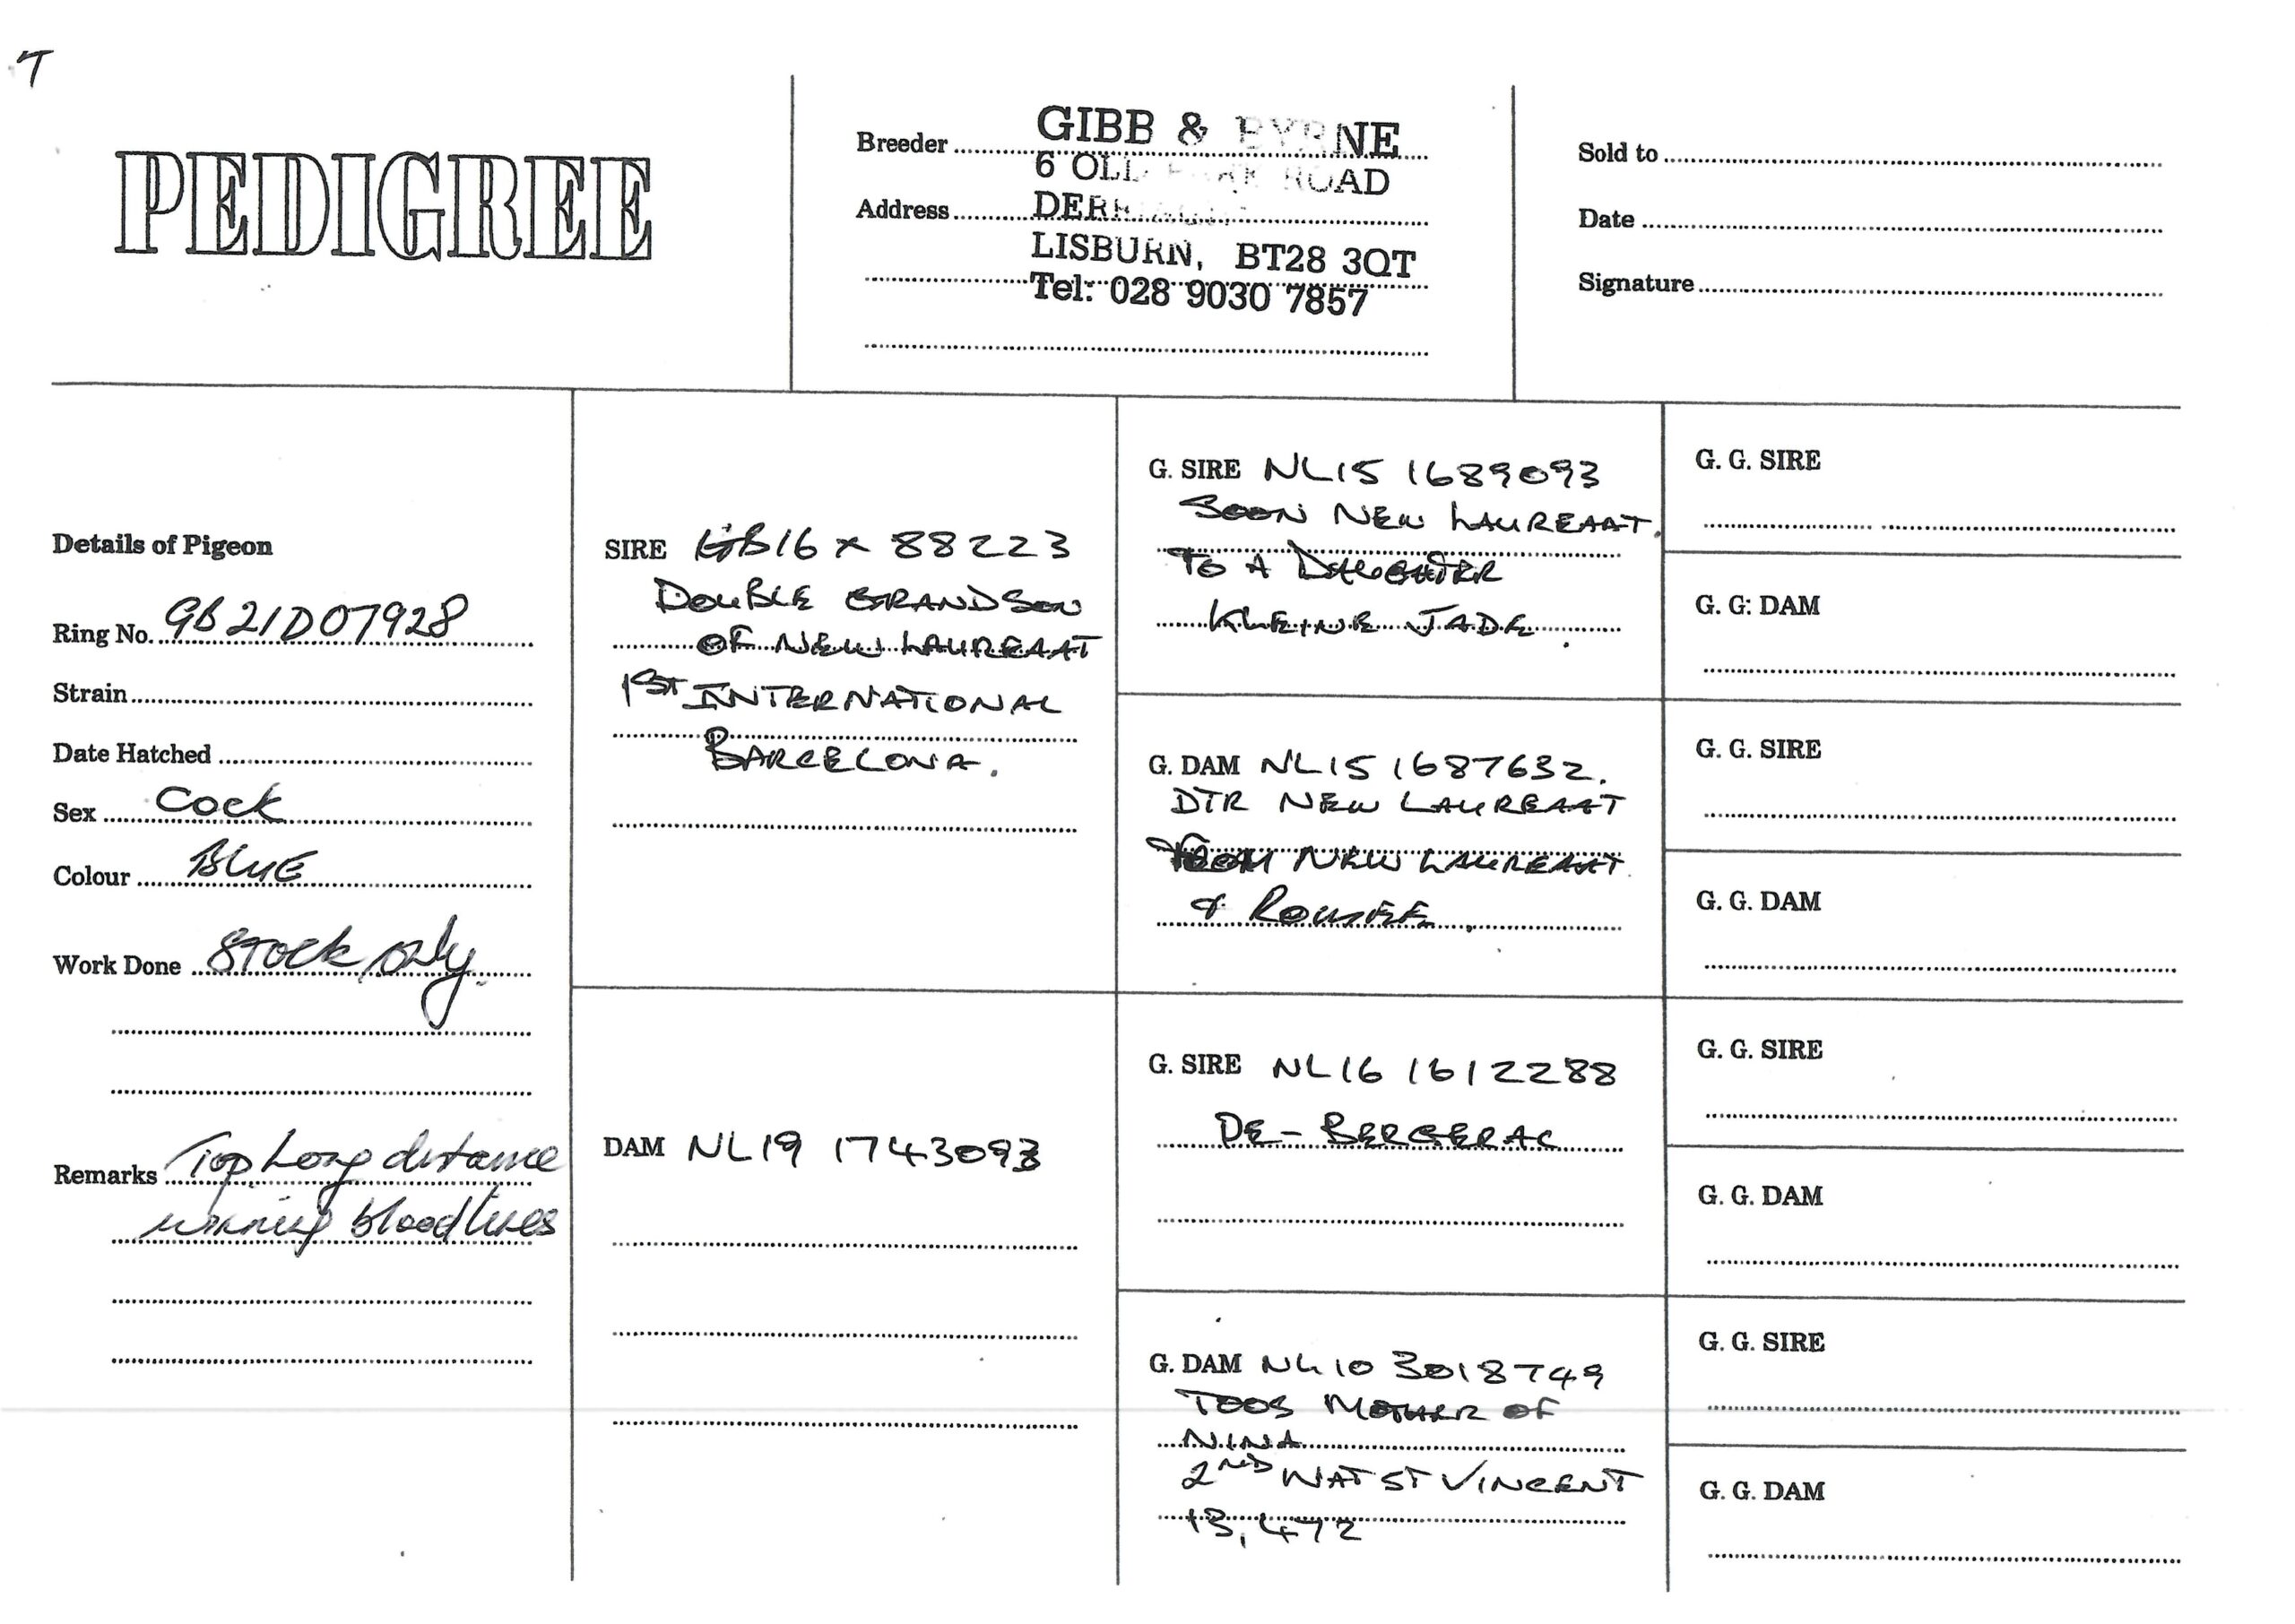 T
PEDIGREE
Breeder GIBB & BYRNE
6 OLD ROAD
Address
LISBURN, BT28 3QT
Tel: 028 9030 7857
Sold to
Date
Signature
Details of Pigeon
Ring No. GB21D07928
Strain
Date Hatched
Sex Cock
Colour BLUE
Work Done Stock only.
Remarks Top Long distance
winning bloodlines
SIRE GB16 X 88223
DOUBLE GRANDSON
OF NEW LAUREAAT
1ST INTERNATIONAL
BARCELONA.
DAM NL19 1743093
G. SIRE NL15 1689093
SOON NEW LAUREAAT.
TO A DAUGHTER
KLEINE JADE.
G. DAM NL15 1687632.
DTR NEW LAUREAAT
FROM NEW LAUREAAT
&
G. SIRE NL16 1612288
DE - BERGERAC
G. DAM NL10 3018749
TOOS MOTHER OF
NINA
2ND NAT ST VINCENT
13,472
G. G. SIRE
G. G: DAM
G. G. SIRE
G. G. DAM
G. G. SIRE
G. G. DAM
G. G. SIRE
G. G. DAM